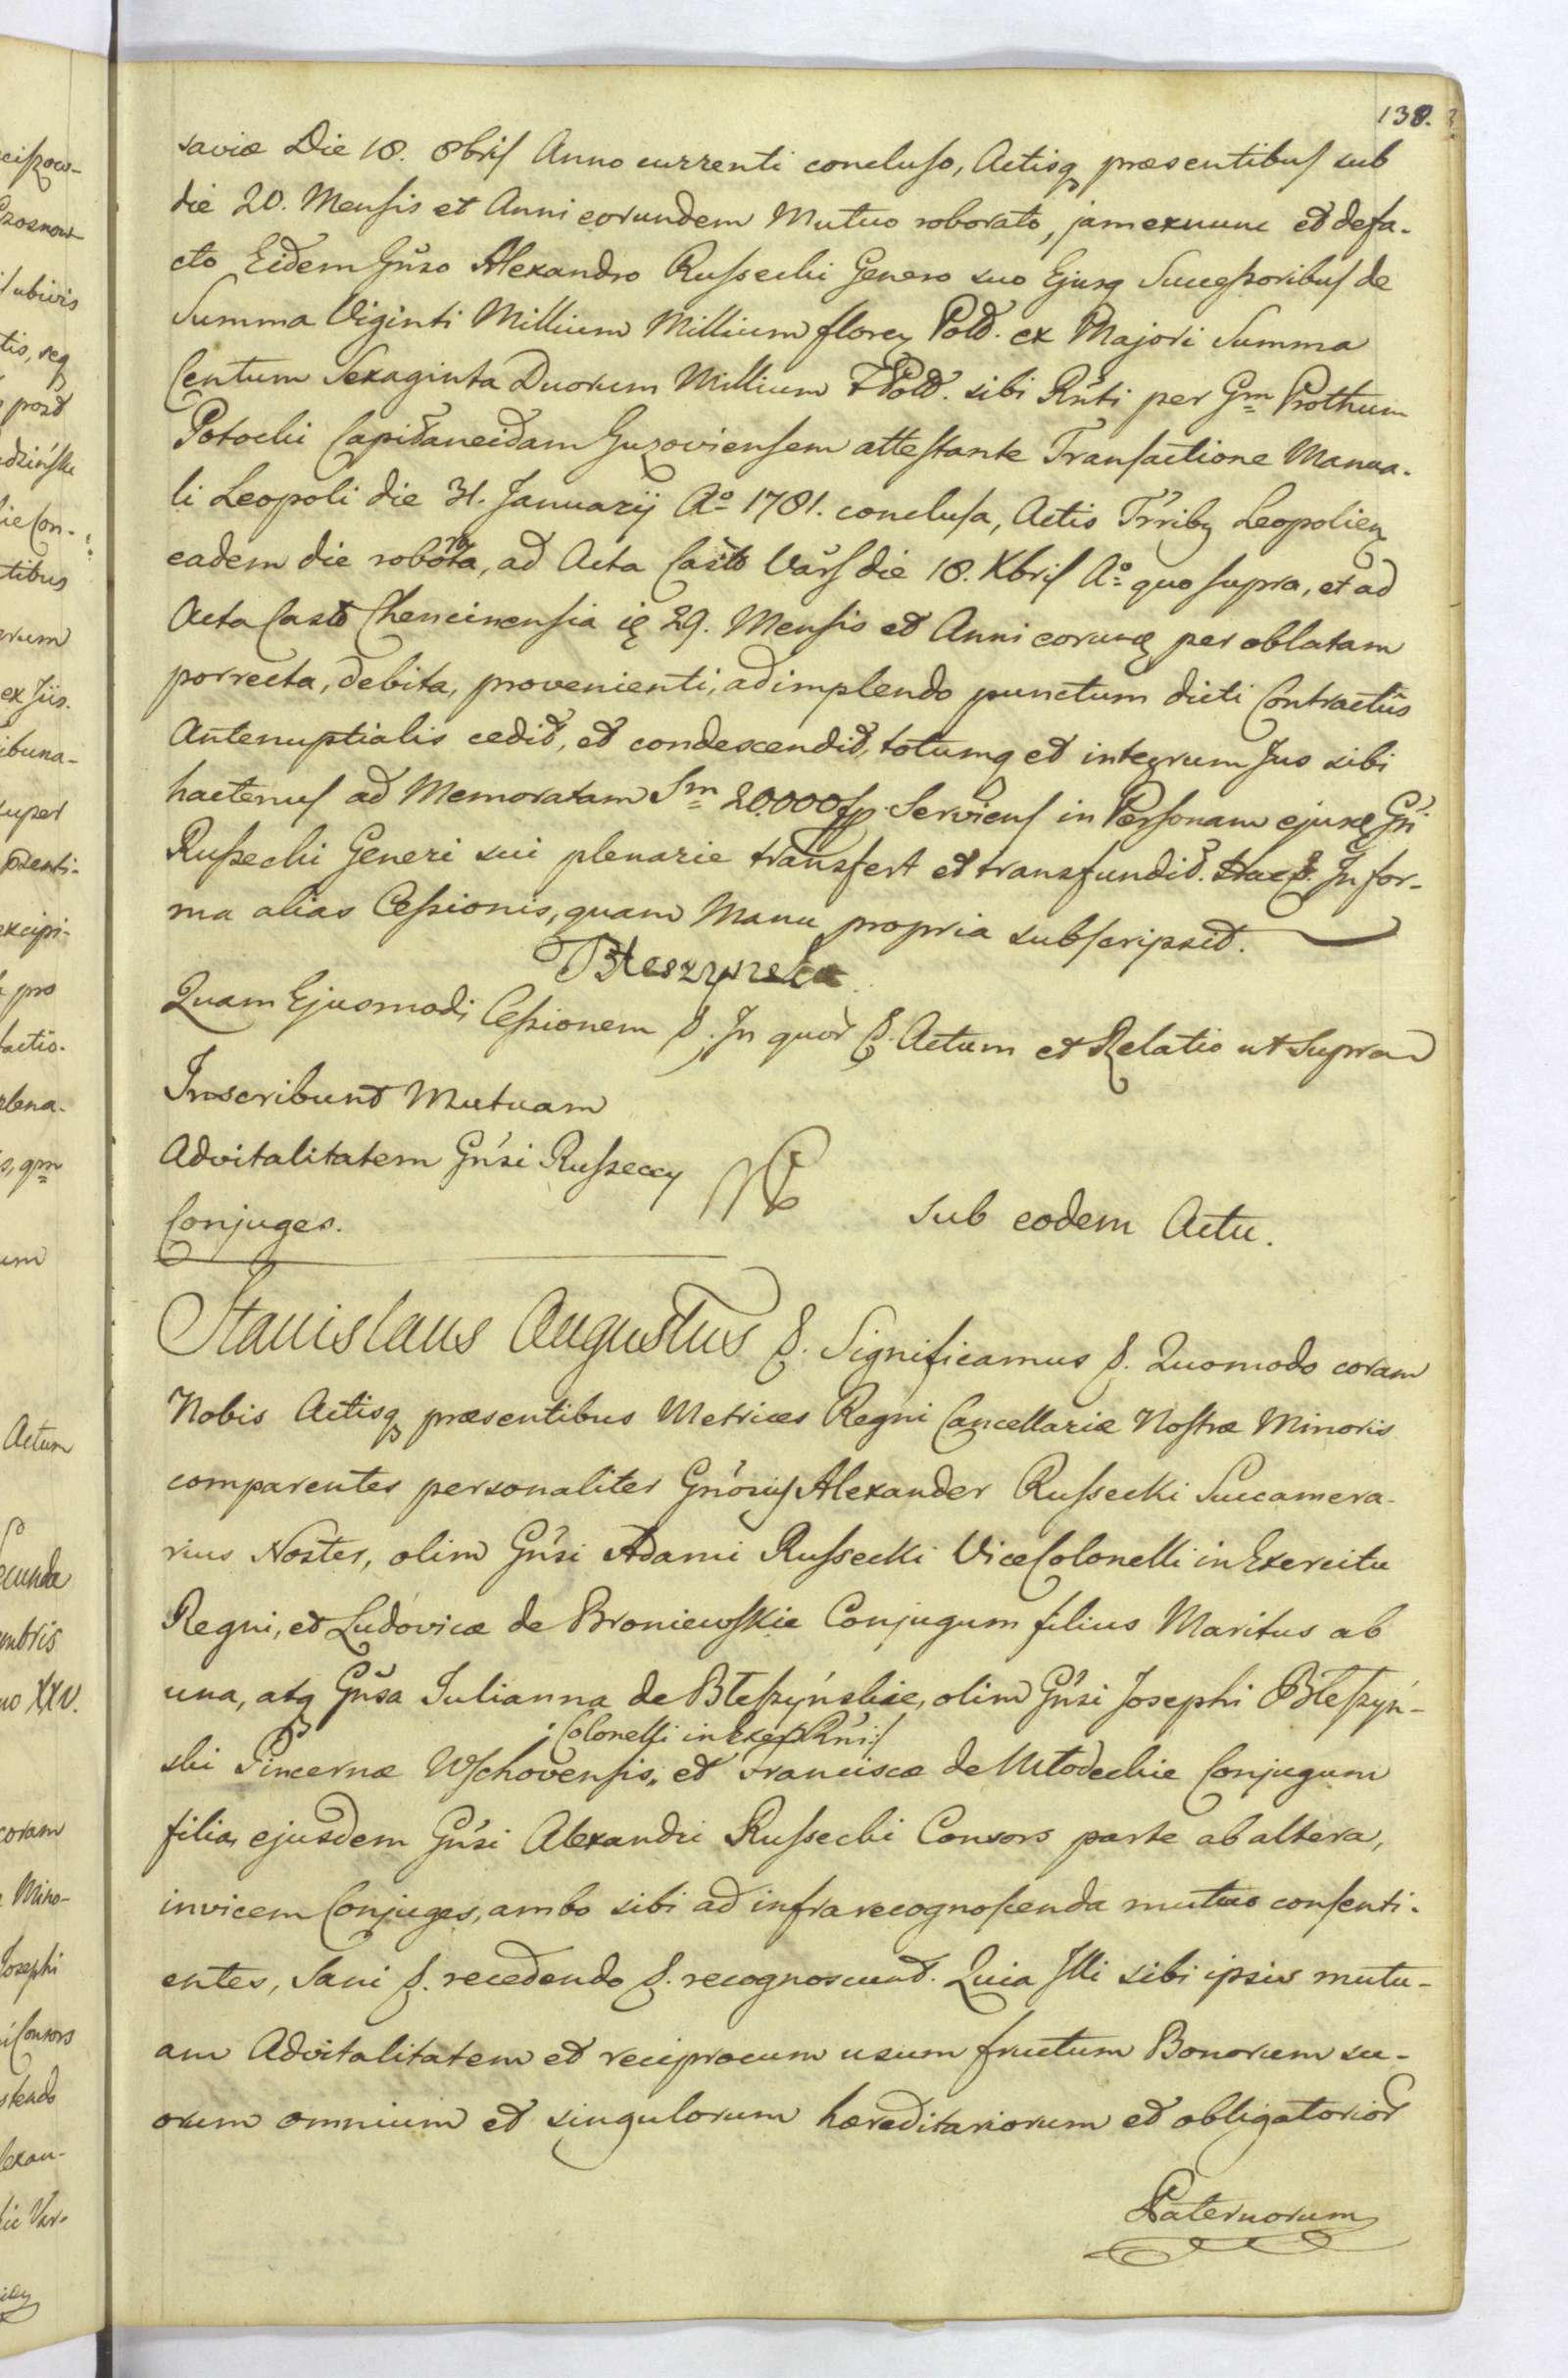 138.
saviæ Die 18. 8bris Anno currenti concluso, Actisq præsentibus sub
die 20. Mensis et Anni eorundem Mutuo roborato, jam exnunc et defa-
cto Eidem Gn̄so Alexandro Russecki Genero suo Ejusq Successoribus de
Summa Viginti Millium Millium floren Pold. ex Majori Summa
Centum Sexaginta Duorum Millium F Pold. sibi Rn̄ti per Gm̱ Prothum
Potocki Capitaneidam Guzoviensem attestante Transactione Manua-
li Leopoli die 31. Januarij Ao 1781. conclusa, Actis Trriby Leopolien
eadem die robota, ad Acta Castr Vars die 18. Xbris Ao quo supra, et ad
Acta Castr Chencinensia 29. Mensis et Anni eorund per oblatam
porrecta, debita, provenienti, adimplendo punctum dicti Contractûs
Antenuptialis cedit, et condescendit, totumq et integrum Jus sibi
hactenus ad Memoratam Sm̱ 20.000 fp. Serviens in Personam ejusd Gn̄i
Russecki Generi sui plenarie transfert et transfundit. In for-
ma alias Cessionis, quam Manu propria subscripsit.
Błeszynska
Quam Ejusmodi Cessionem &. In quor &. Actum et Relatio ut Supra
Inscribunt Mutuam
Advitalitatem Gn̄si Russeccy
Conjuges.
Sub eodem Actu.
Stanislaus Augustus &. Significamus &. Quomodo coram
Nobis Actisq præsentibus Metrices Regni Cancellariæ Nostræ Minoris
comparentes personaliter Gn̄osus Alexander Russecki Succamera-
rius Noster, olim Gn̄si Adami Russecki ViceColonelli in Exercitu
Regni, et Ludovicæ de Broniewskie Conjugum filius Maritus ab
una, atq Gn̄sa Julianna de Błeszyńskie, olim Gn̄si Josephi Błeszyń-
/:Colonelli in Exer Rn̄i:/
ski Pincernæ Wschovensis, et Franciscæ de Młodeckie Conjugum
filia, ejusdem Gn̄si Alexandri Russecki Consors parte ab altera,
invicem Conjuges, ambo sibi ad infra recognoscenda mutuo consenti-
entes, Sani &. recedendo &. recognoscunt. Quia Illi sibi ipsis mutu-
am Advitalitatem et reciprocum usum fructum Bonorum su-
orum omnium et singulorum hæreditariorum et obligatorior
Paternorum